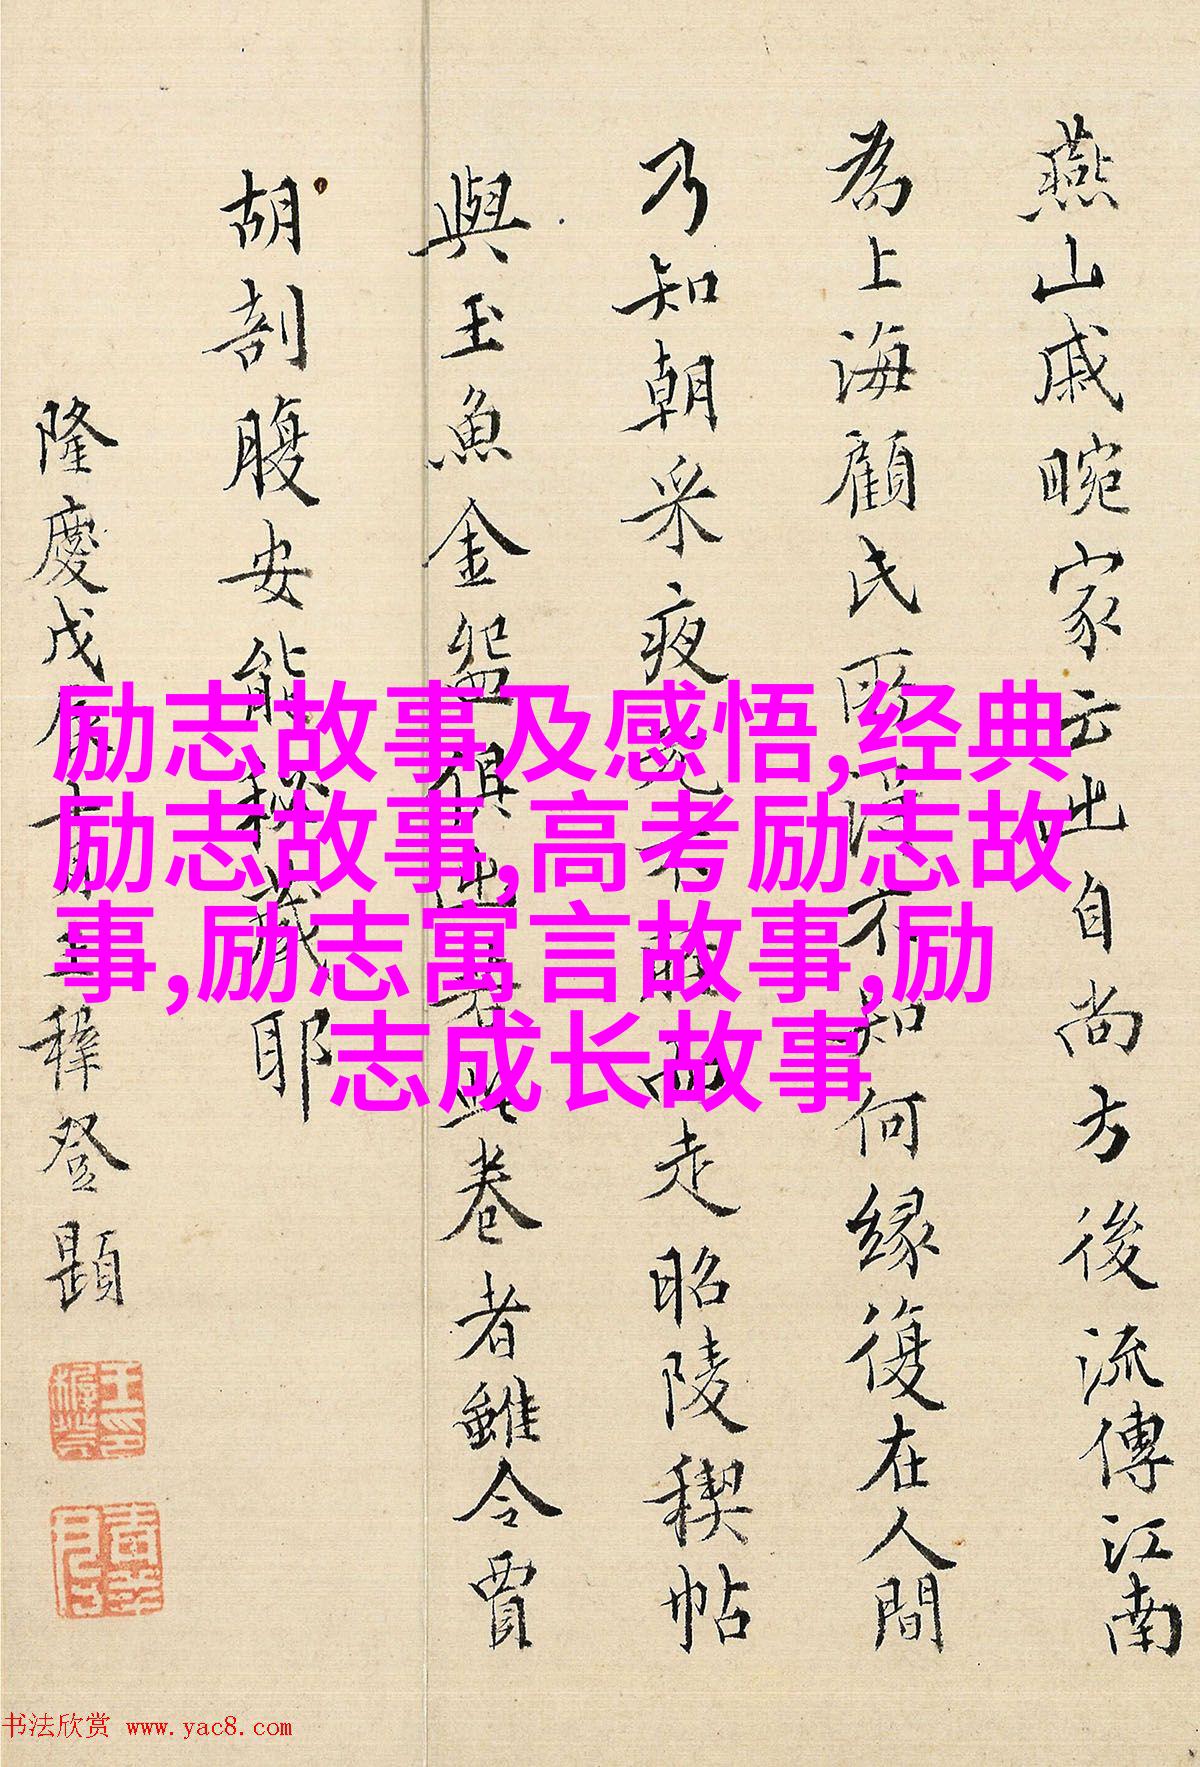 燕山戚畹家云出自尚方後流傳江南
為上海顧氏所得不知何緣復在人間
乃知朝采夜光不脛而走昭陵稧帖
與玉魚金盌俱出若此卷者雖令賈
胡剖腹安能秘藏耶
隆慶戊辰月王穉登題
励志故事及感悟,经典
励志故事,高考励志故
事,励志寓言故事,励
志成长故事
书法欣赏 www.yac8.com